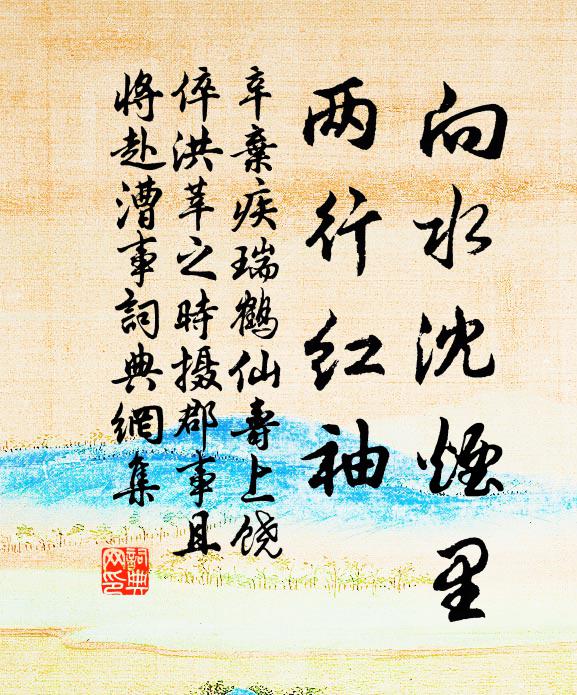 向水沈煙里
两行红袖
辛棄疾瑞鶴仙壽上饶
倅洪莘之時摄郡事且
将赴漕事詞典網集
詞典
网印